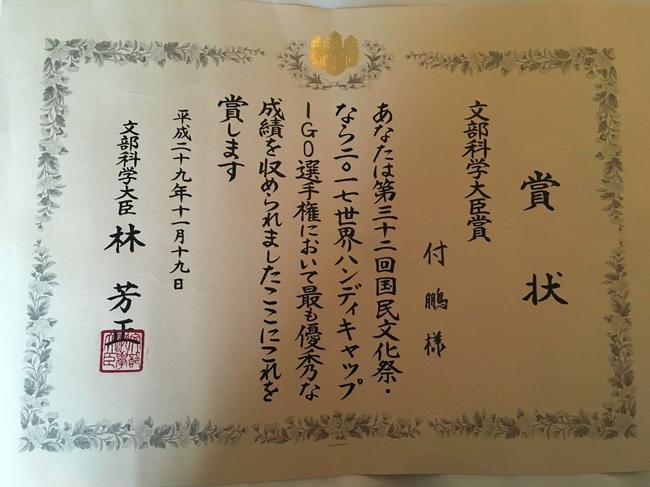 賞状
文部科学大臣賞
付鵬様
あなたは第三十二回国民文化祭・
なら二〇一七世界ハンディキャップ
IGO選手権において最も優秀な
成績を収められましたここにこれを
賞します
平成二十九年十一月十九日
文部科学大臣 林芳正